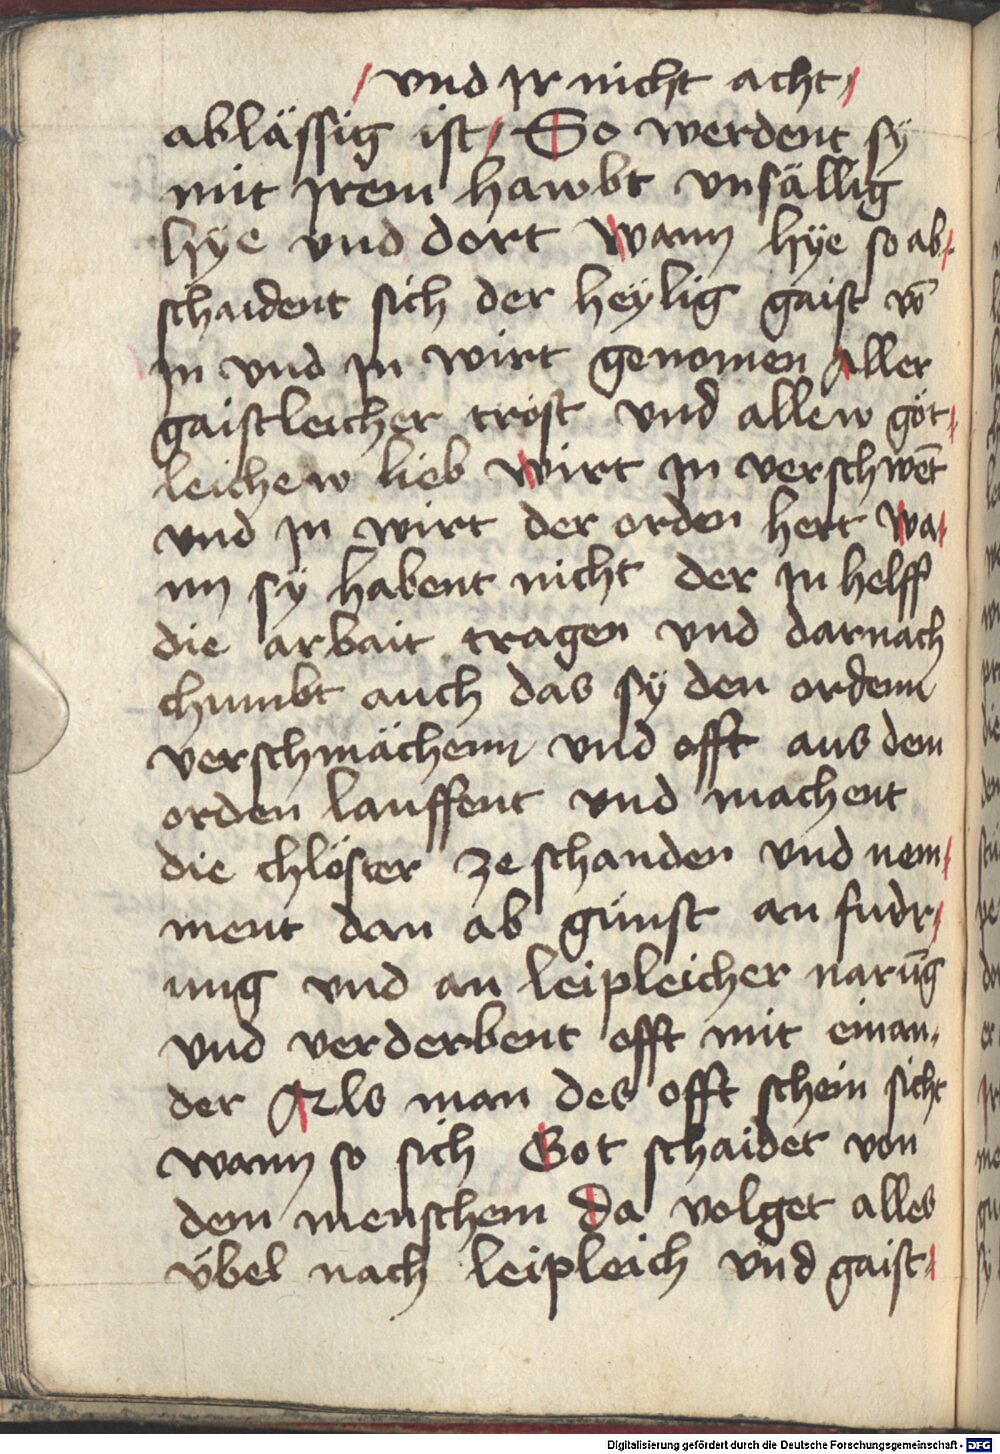 / vnd Jr nicht acht /
ablässig ist / So werdent sÿ
mit Jrem hawbt vnsällig
hÿe vnd dort Wann hÿe so ab/
schaident sich der heÿlig gaist vō
Jn vnd Jn wirt genomen Aller
gaistleicher trost vnd allew göt/
leichew lieb Wirt Jn verschwēt
vnd Jn wirt der orden hert Wa/
nn sÿ habent nicht der Jn helff
die arbait tragen vnd darnach
chumbt auch das sÿ den ordenn
verschmächenn vnd offt aus dem
orden lauffent vnd machent
die chlöster ze schanden vnd nem/
ment dan ab günst an fudr/
ung vnd an leipleicher narūg
vnd verderbent offt mit einan/
der Als man des offt schein sicht
wann so sich Got schaidet von
dem menschem Da volget alles
vbel nach leipleich vnd gaist/
Digitalisierung gefördert durch die Deutsche Forschungsgemeinschaft - DFG